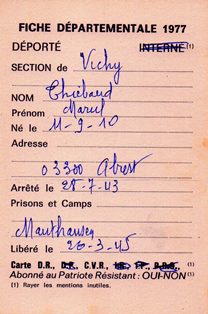 FICHE DÉPARTEMENTALE 1977
DÉPORTÉ INTERNÉ (1)
SECTION de Vichy
NOM Thiébaud
Prénom Marcel
Né le 11-9-10
Adresse
03300 Abrest
Arrêté le 28-7-43
Prisons et Camps
Mauthausen
Libéré le 26-3-45
Carte D.R., D.P., C.V.R.,
Abonné au Patriote Résistant : OUI-NON (1)
(1) Rayer les mentions inutiles.